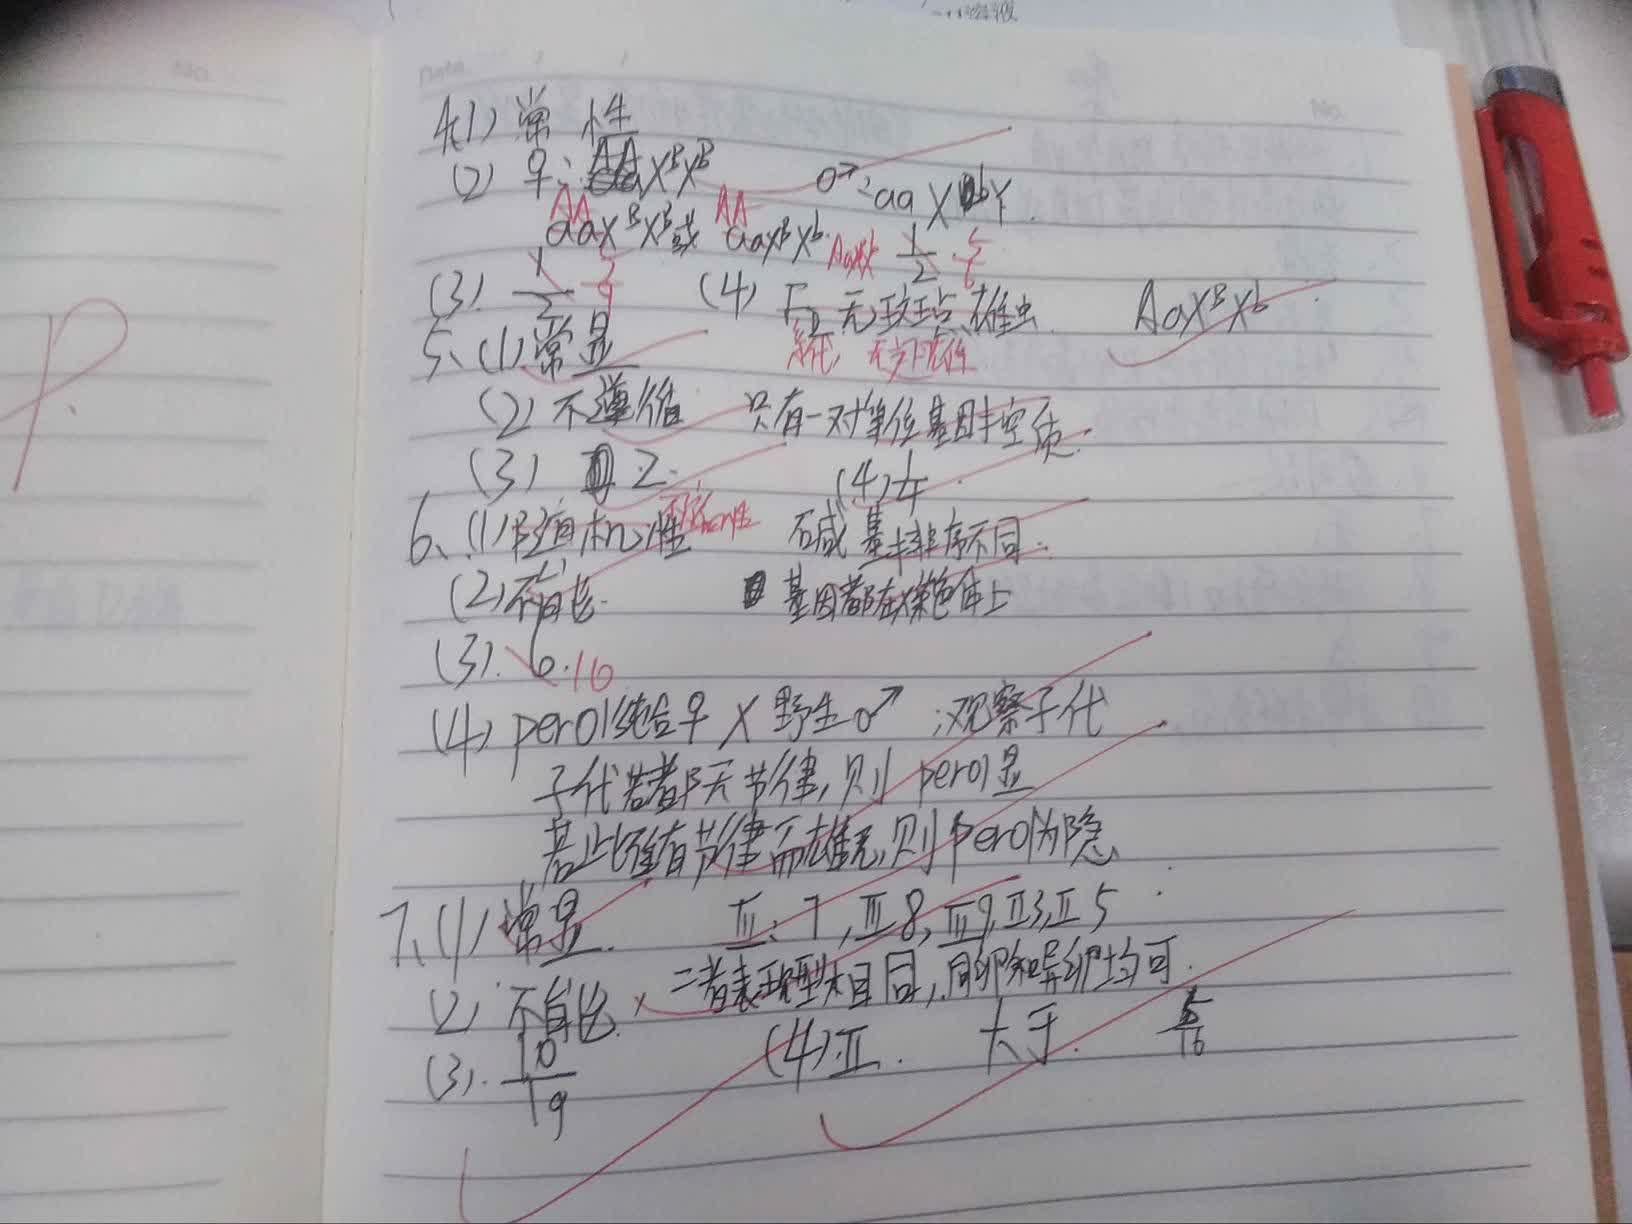 No.
Date.
No.
4(1) 常 性
(2) ♀: AA X^B X^B ♂: aa X^b Y.
AA AA
aaX^B X^B 或 aaX^B X^b. 1/2 5/6
(3). 1/2 (4) 无斑点雄虫 AaX^B X^b
5、(1) 常 显
(2) 不遵循 只有一对等位基因控制.
(3) 2. (4) 1/4.
6、(1) 随机性 不定向性 碱基排序不同.
(2) 不能. 基因都在X染色体上
(3). 6. 16
(4) per01纯合♀ X 野生♂ ;观察子代
子代若都无节律,则 per01 显
若雌有节律而雄无,则 per01 为隐
7、(1) 常显. Ⅲ: 7, Ⅲ8, Ⅲ9, Ⅱ3, Ⅱ5
(2) 不能. 二者表现型相同,同卵和异卵均可.
(3). 10/19 (4) Ⅱ. 大于. 5/16